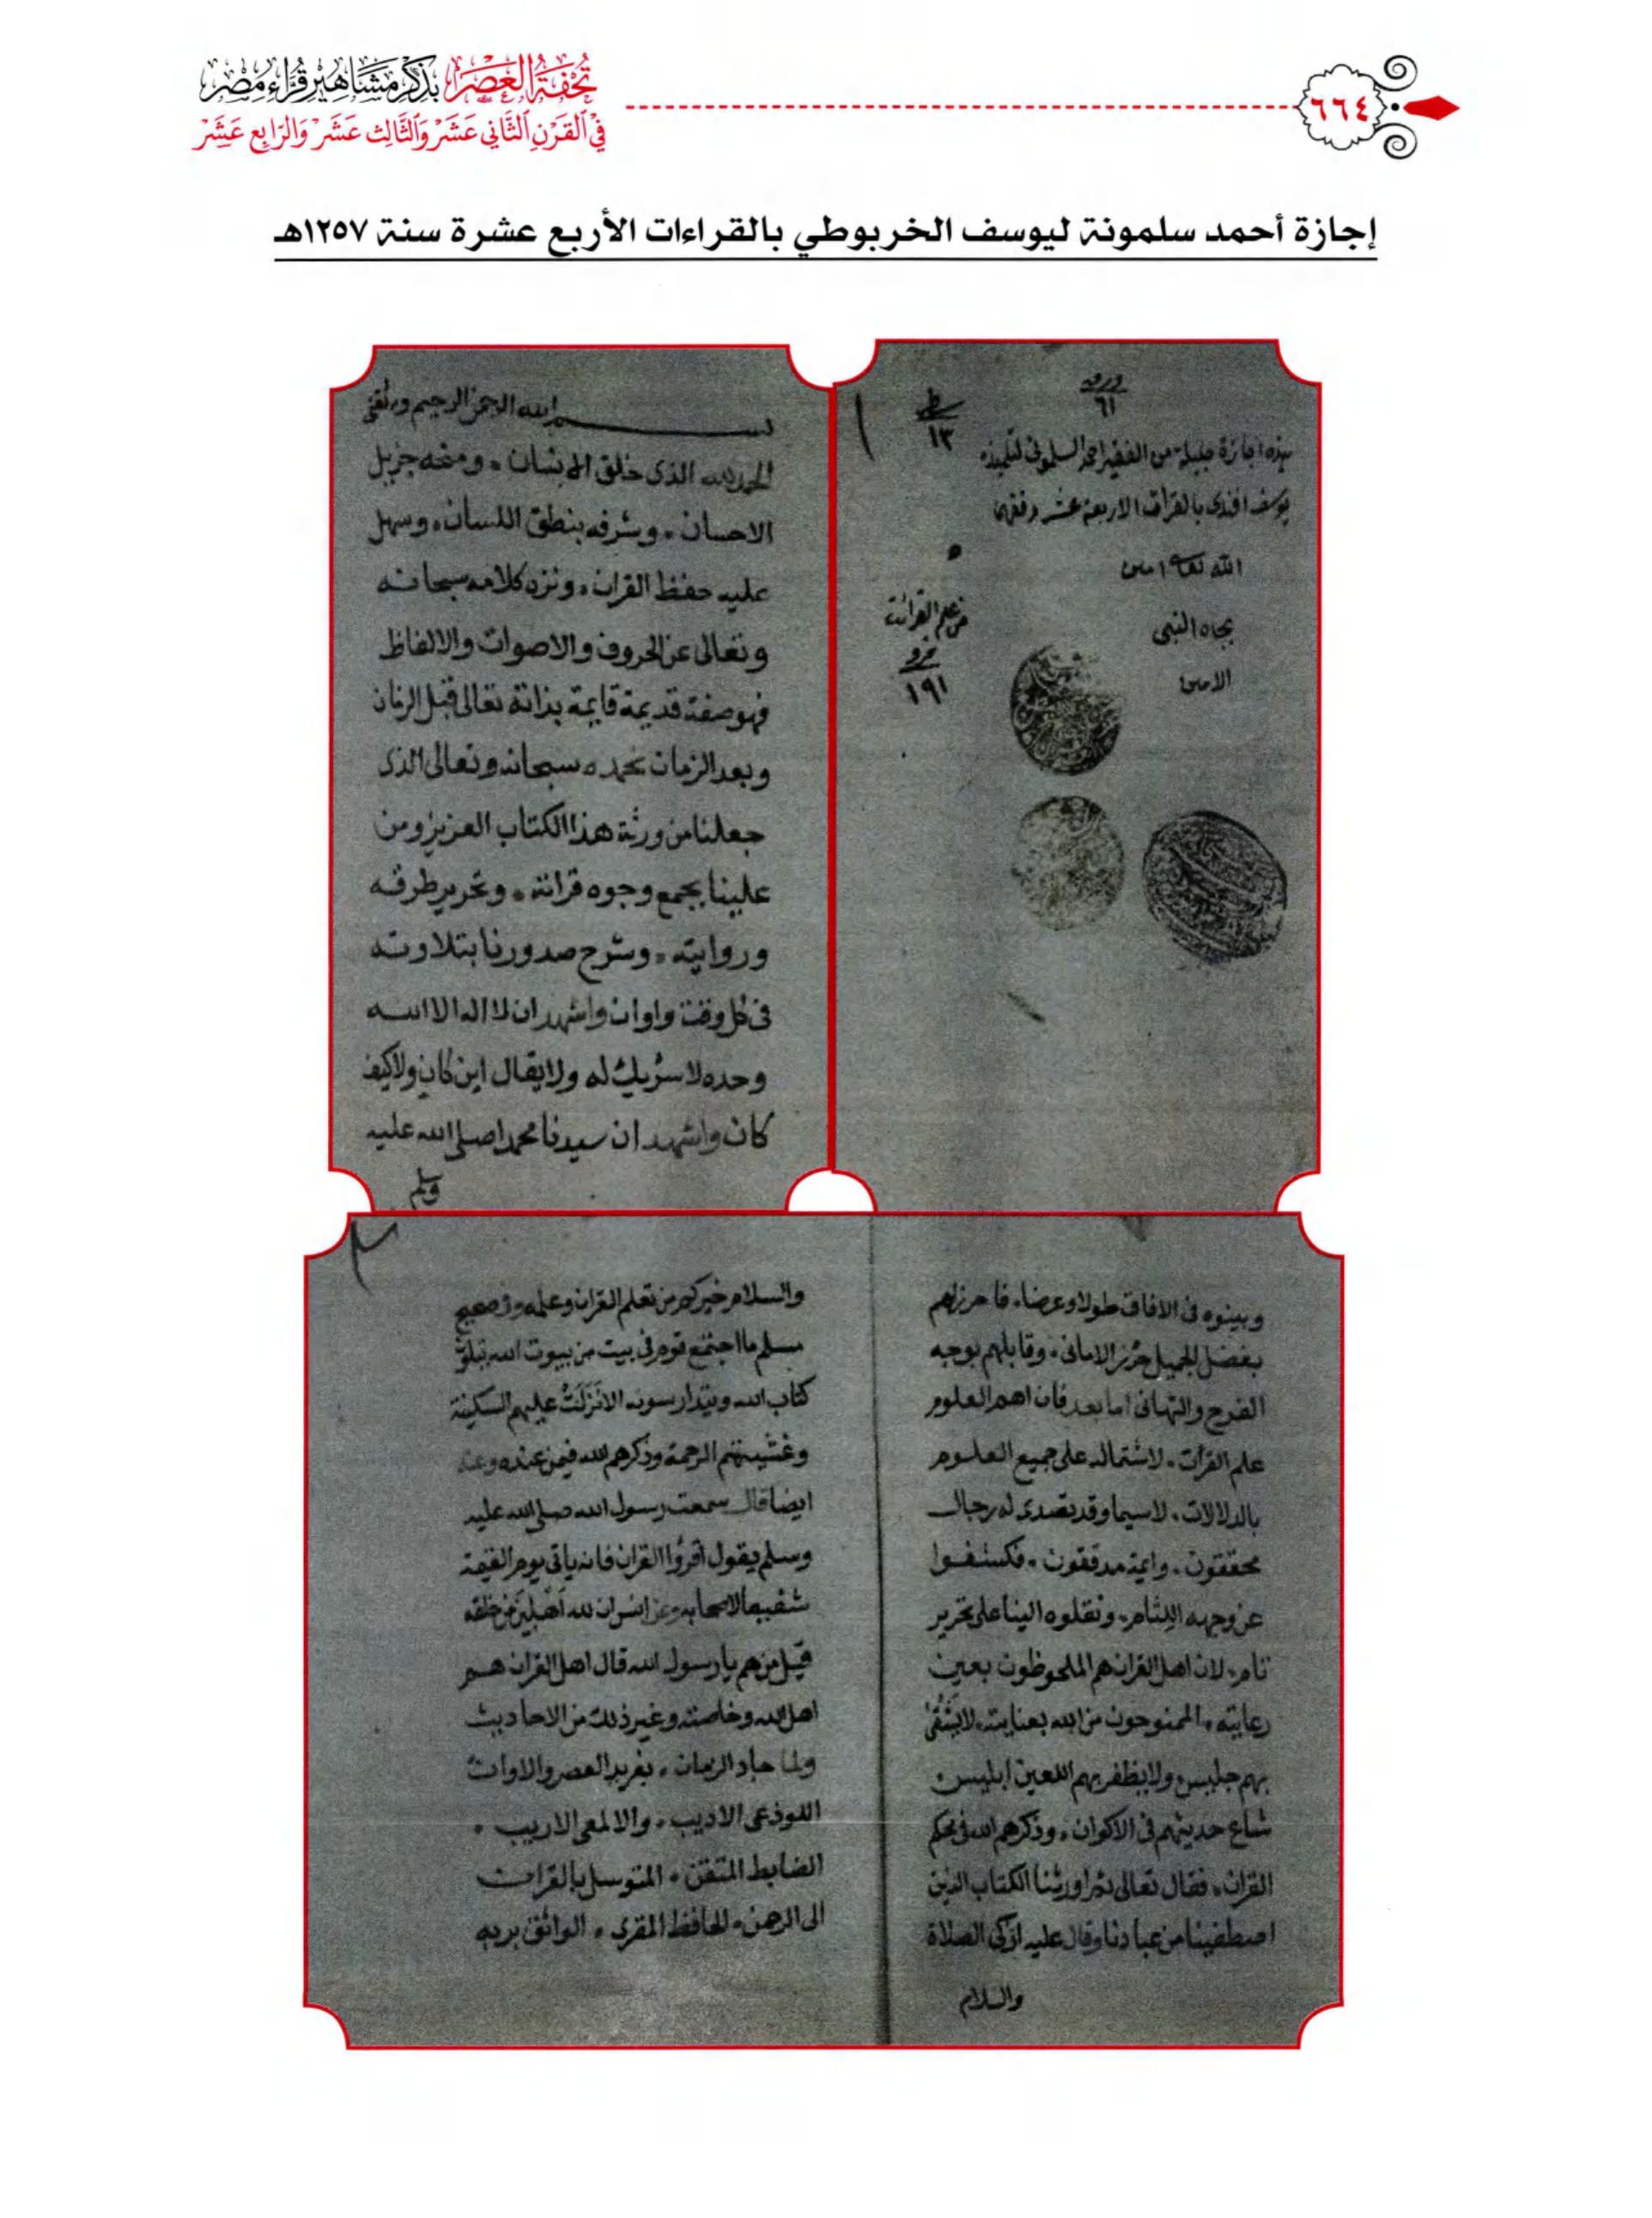 تُحْفَةُ العَصْرِ بِذِكْرِ مَشَاهِيرِ قُرَّاءِ مِصْرَ
فِي القَرْنِ الثَّانِي عَشَرَ وَالثَّالِثَ عَشَرَ وَالرَّابِعَ عَشَرَ
٦٦٤
إجازة أحمد سلمونة ليوسف الخربوطي بالقراءات الأربع عشرة سنة ١٢٥٧هـ
ورق
٦١
سطر
١٣
هذه اجازة جليلة من الفقير احمد السلمونى لتلميذه
يوسف افندى بالقرات الاربعة عشر وفقهما
الله تعالى امين
بجاه النبى
الامين
من علم القرائت
١٩١
بسم الله الرحمن الرحيم وبه ثقتى
الحمد لله الذى خلق الانسان ٠ ومنحه جزيل
الاحسان ٠ وشرفه بنطق اللسان ٠ وسهل
عليه حفظ القران ٠ ونزه كلامه سبحانه
وتعالى عن الحروف والاصوات والالفاظ
فهو صفة قديمة قايمة بذاته تعالى قبل الزمان
وبعد الزمان نحمده سبحانه وتعالى الذى
جعلنا من ورثة هذا الكتاب العزيز ومن
علينا بجمع وجوه قراته ٠ وتحرير طرقه
وروايته ٠ وشرح صدورنا بتلاوته
فى كل وقت واوان واشهد ان لا اله الا الله
وحده لا شريك له ولا يقال اين كان ولا كيف
كان واشهد ان سيدنا محمدا صلى الله عليه
وسلم
وبينوه فى الافاق طولا وعرضا ٠ فاحرزلهم
بفضل الجميل حرز الامانى ٠ وقابلهم بوجه
الفرح والتهانى اما بعد فان اهم العلوم
علم القرآت ٠ لاشتماله على جميع العلوم
بالدلالات ٠ لاسيما وقد تصدى له رجال
محققون ٠ وايمة مدققون ٠ فكشفوا
عن وجهه اللثام ٠ ونقلوه الينا على تحرير
تام ٠ لان اهل القران هم الملحوظون بعين
رعايته ٠ الممنوحون من الله بعنايته ٠ لايشقى
بهم جليس ولا يظفر بهم اللعين ابليس
شاع حديثهم فى الاكوان ٠ وذكرهم الله فى محكم
القران ٠ فقال تعالى ثم اورثنا الكتاب الذين
اصطفينا من عبادنا وقال عليه ازكى الصلاة
والسلام
٢
والسلام خيركم من تعلم القران وعلمه وفى صحيح
مسلم ما اجتمع قوم فى بيت من بيوت الله يتلون
كتاب الله ويتدارسونه الا نَزَلَتْ عليهم السكينة
وغشيتهم الرحمة وذكرهم الله فيمن عنده وعنه
ايضا قال سمعت رسول الله صلى الله عليه
وسلم يقول اقرؤا القران فانه ياتى يوم القيمة
شفيعا لاصحابه وعن انس ان لله اَهْلِينَ من خلقه
قيل من هم يا رسول الله قال اهل القران هم
اهل الله وخاصته وغير ذلك من الاحاديث
ولما جاد الزمان ٠ بفريد العصر والاوان
اللوذعى الاديب ٠ والالمعى الاريب ٠
الضابط المتقن ٠ المتوسل بالقرات
الى الرحمن ٠ الحافظ المقرى ٠ الواثق بربه